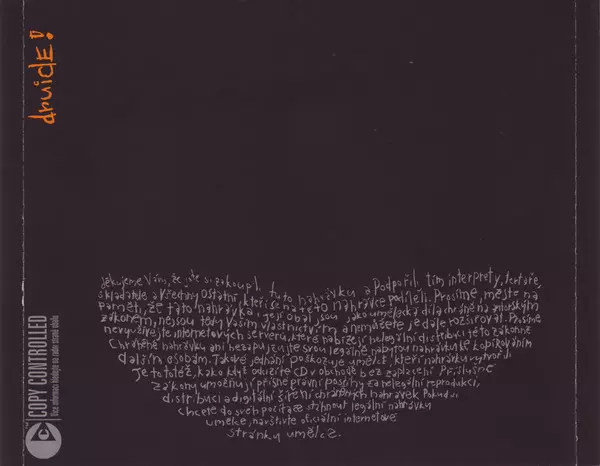 druidE!
COPY CONTROLLED
Více informací hledejte na zadní straně obalu
Děkujeme Vám, že jste si zakoupili tuto nahrávku a podpořili tím interprety, textaře,
skladatele a všechny ostatní, kteří se na této nahrávce podíleli. Prosíme, mějte na
paměti, že tato nahrávka i její obal jsou jako umělecká díla chráněné autorským
zákonem, nejsou tedy Vaším vlastnictvím a nemůžete je dále rozšiřovat. Prosíme
nevyužívejte internetových serverů, které nabízejí nelegální distribuci této zákonně
chráněné nahrávky ani nezapůjčujte svou legálně nabytou nahrávku ke kopírování
dalším osobám. Takové jednání poškozuje umělce, kteří nahrávku vytvořili
Je to totéž, jako když odcizíte CD v obchodě bez zaplacení. Příslušné
zákony umožňují přísné právní postihy za nelegální reprodukci,
distribuci a digitální šíření chráněných nahrávek. Pokud si
chcete do svého počítače stáhnout legální nahrávku
umělce, navštivte oficiální internetové
stránky umělce.